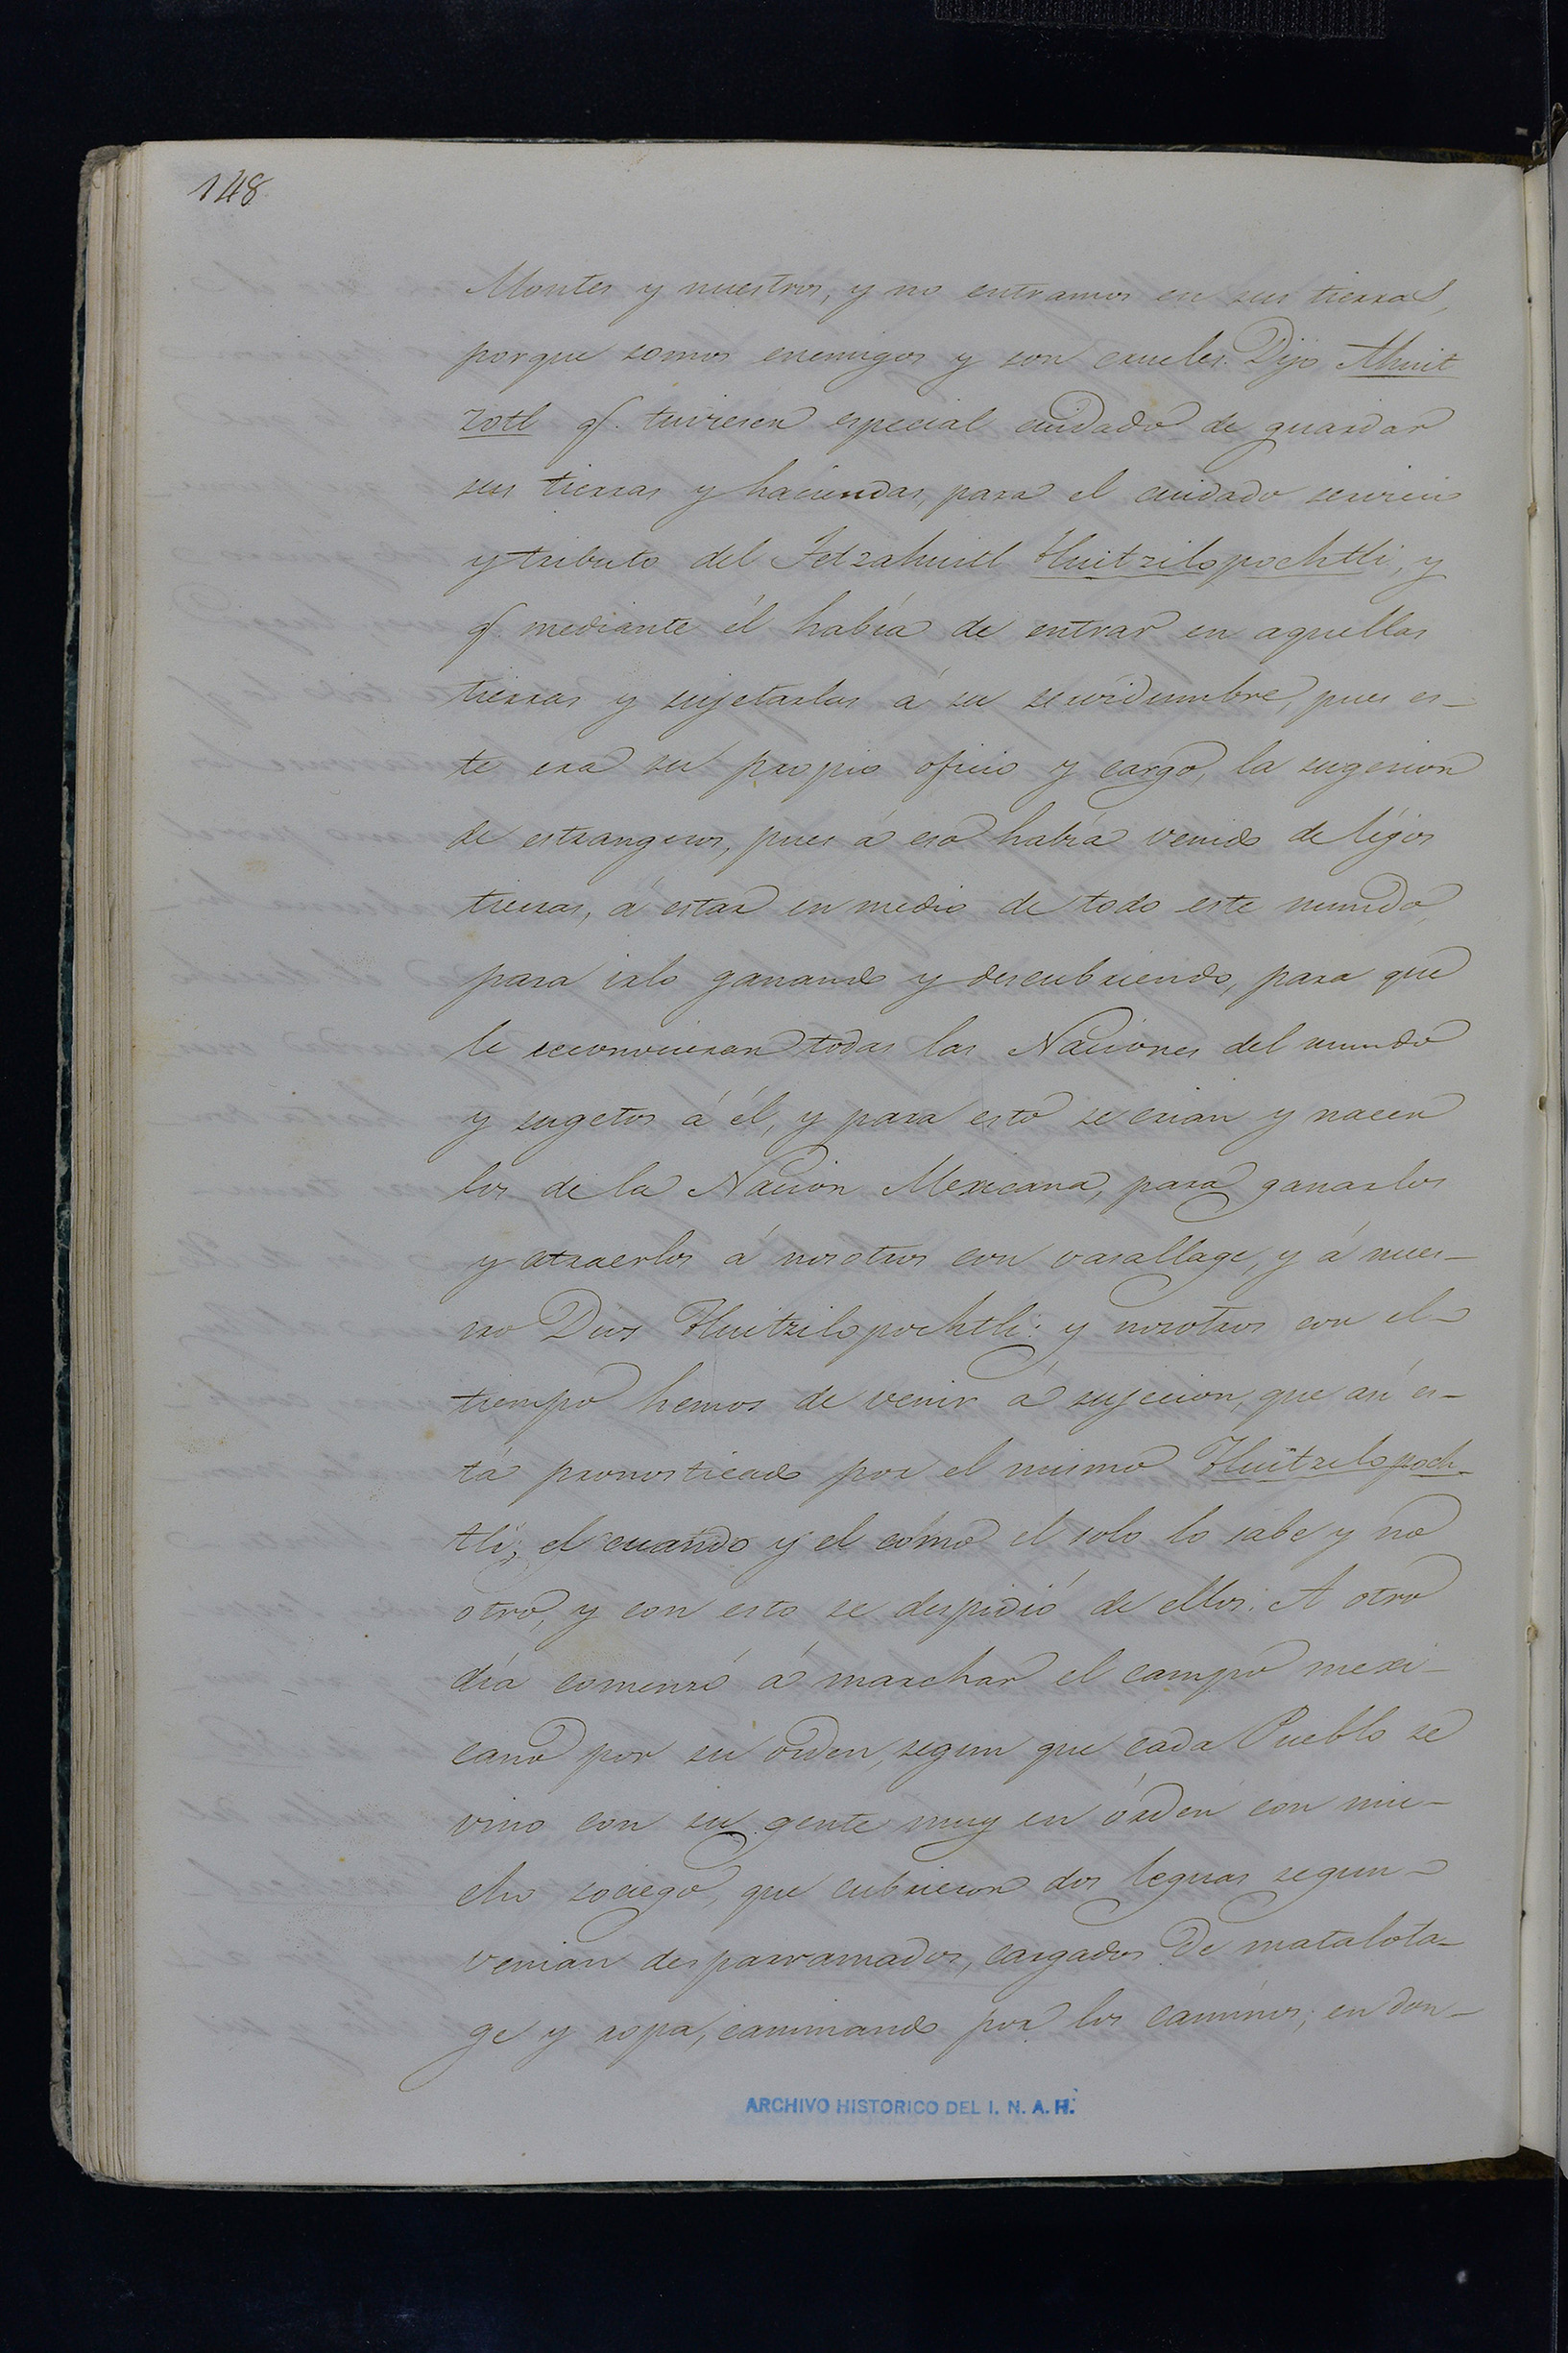 148
Montes y nuestros, y no entramos en sus tierras,
porque somos enemigos y son crueles. Dijo Ahuit
zotl q. tuviesen especial cuidado de guardar
sus tierras y haciendas, para el cuidado servicio
y tributo del Tetzahuitl Huitzilopochtli, y
q. mediante él había de entrar en aquellas
tierras y sujetarlas á su servidumbre, pues es-
te era su propio oficio y cargo, la sugesion
de estrangeros, pues á eso había venido de léjos
tierras, á estar en medio de todo este mundo,
para irlo ganando y descubriendo, para que
le reconocieran todas las Naciones del mundo
y sugetos á él, y para esto se crian y nacen
los de la Nacion Mexicana, para ganarlos
y atraerlos á nosotros con vasallage, y á nues-
tro Dios Huitzilopochtli: y nosotros con el
tiempo hemos de venir á sujecion, que así es-
tá pronosticado por el mismo Huitzilopoch-
tli; el cuando y el cómo él solo lo sabe y no
otro, y con esto se despidió de ellos. A otro
día comenzó á marchar el campo mexi-
cano por su orden, segun que cada Pueblo se
vino con su gente muy en órden con mu-
cho sociego, que cubrieron dos leguas segun
venian desparramados, cargados de matalota-
ge y ropa, caminando por los caminos; en don-
ARCHIVO HISTORICO DEL I. N. A. H.